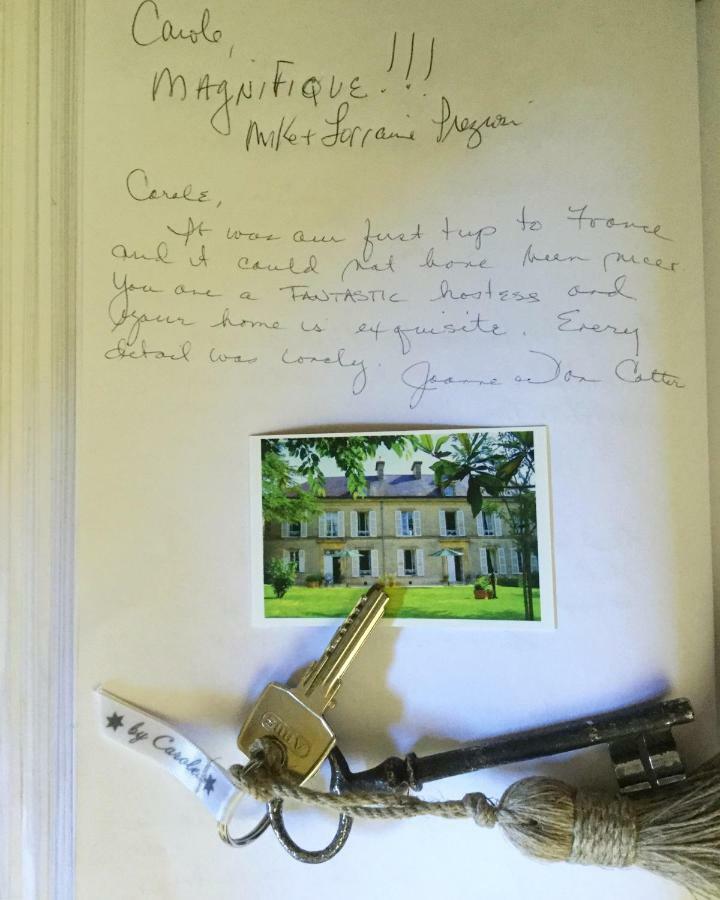 Carole,
MAGNIFIQUE!!!
Mike + Lorraine
Carole,
It was our first trip to France
and it could not have been nicer
You are a FANTASTIC hostess and
your home is exquisite. Every
detail was lovely. Joanne & Don Cotter
ABUS
by Carole